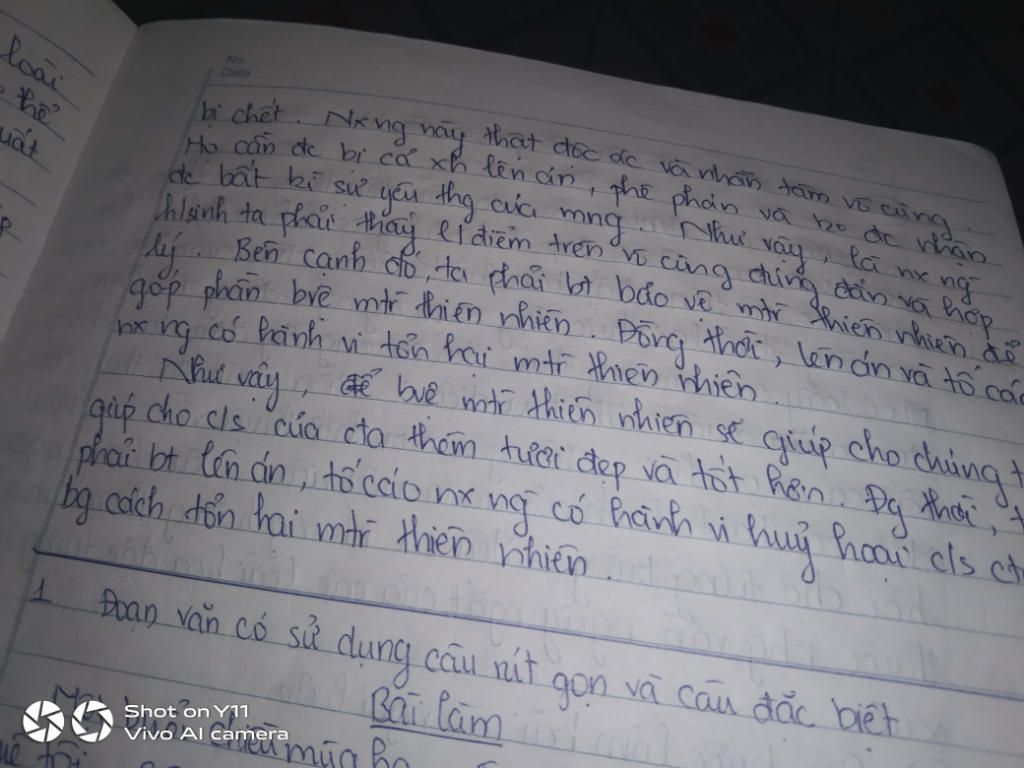 loài
thể
uất
No.
Date
bị chết. Nx ng này thật độc ác và nhẫn tâm vô cùng.
Họ cần đc bị cả xh lên án, phê phán và ko đc nhận
đc bất kì sự yêu thg của mng. Như vậy, là nx ng
hlsinh ta phải thấy qđiểm trên vô cùng đúng đắn và hợp
lý. Bên cạnh đó, ta phải bt bảo vệ mtr thiên nhiên để
góp phần bvệ mtr thiên nhiên. Đồng thời, lên án và tố cáo
nx ng có hành vi tổn hại mtr thiên nhiên.
Như vậy, bvệ mtr thiên nhiên sẽ giúp cho chúng t
giúp cho c/s của cta thêm tươi đẹp và tốt hơn. Đg thời, t
phải bt lên án, tố cáo nx ng có hành vi huỷ hoại c/s ct
bg cách tổn hại mtr thiên nhiên.
1. Đoạn văn có sử dụng câu rút gọn và câu đặc biệt
Bài làm
chiều mùa hạ
tôi
Shot on Y11
Vivo AI camera